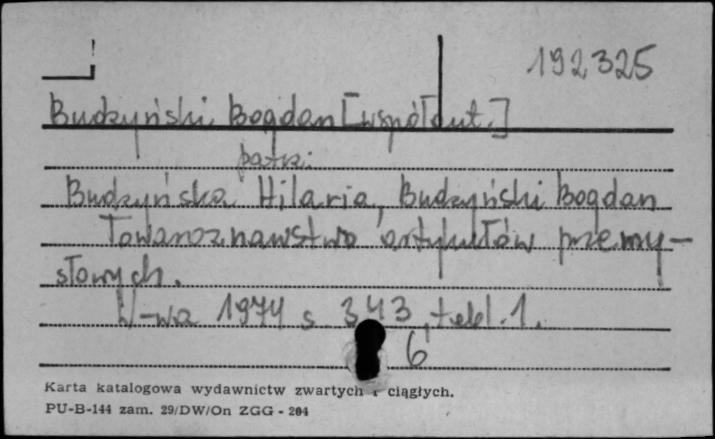 192325
Budzyński Bogdan [współaut.]
patrz:
Budzyńska Hilaria, Budzyński Bogdan
Towaroznawstwo artykułów przemy-
słowych.
W-wa 1974 s 343, tabl. 1.
6
Karta katalogowa wydawnictw zwartych i ciągłych.
PU-B-144 zam. 29/DW/On ZGG - 204